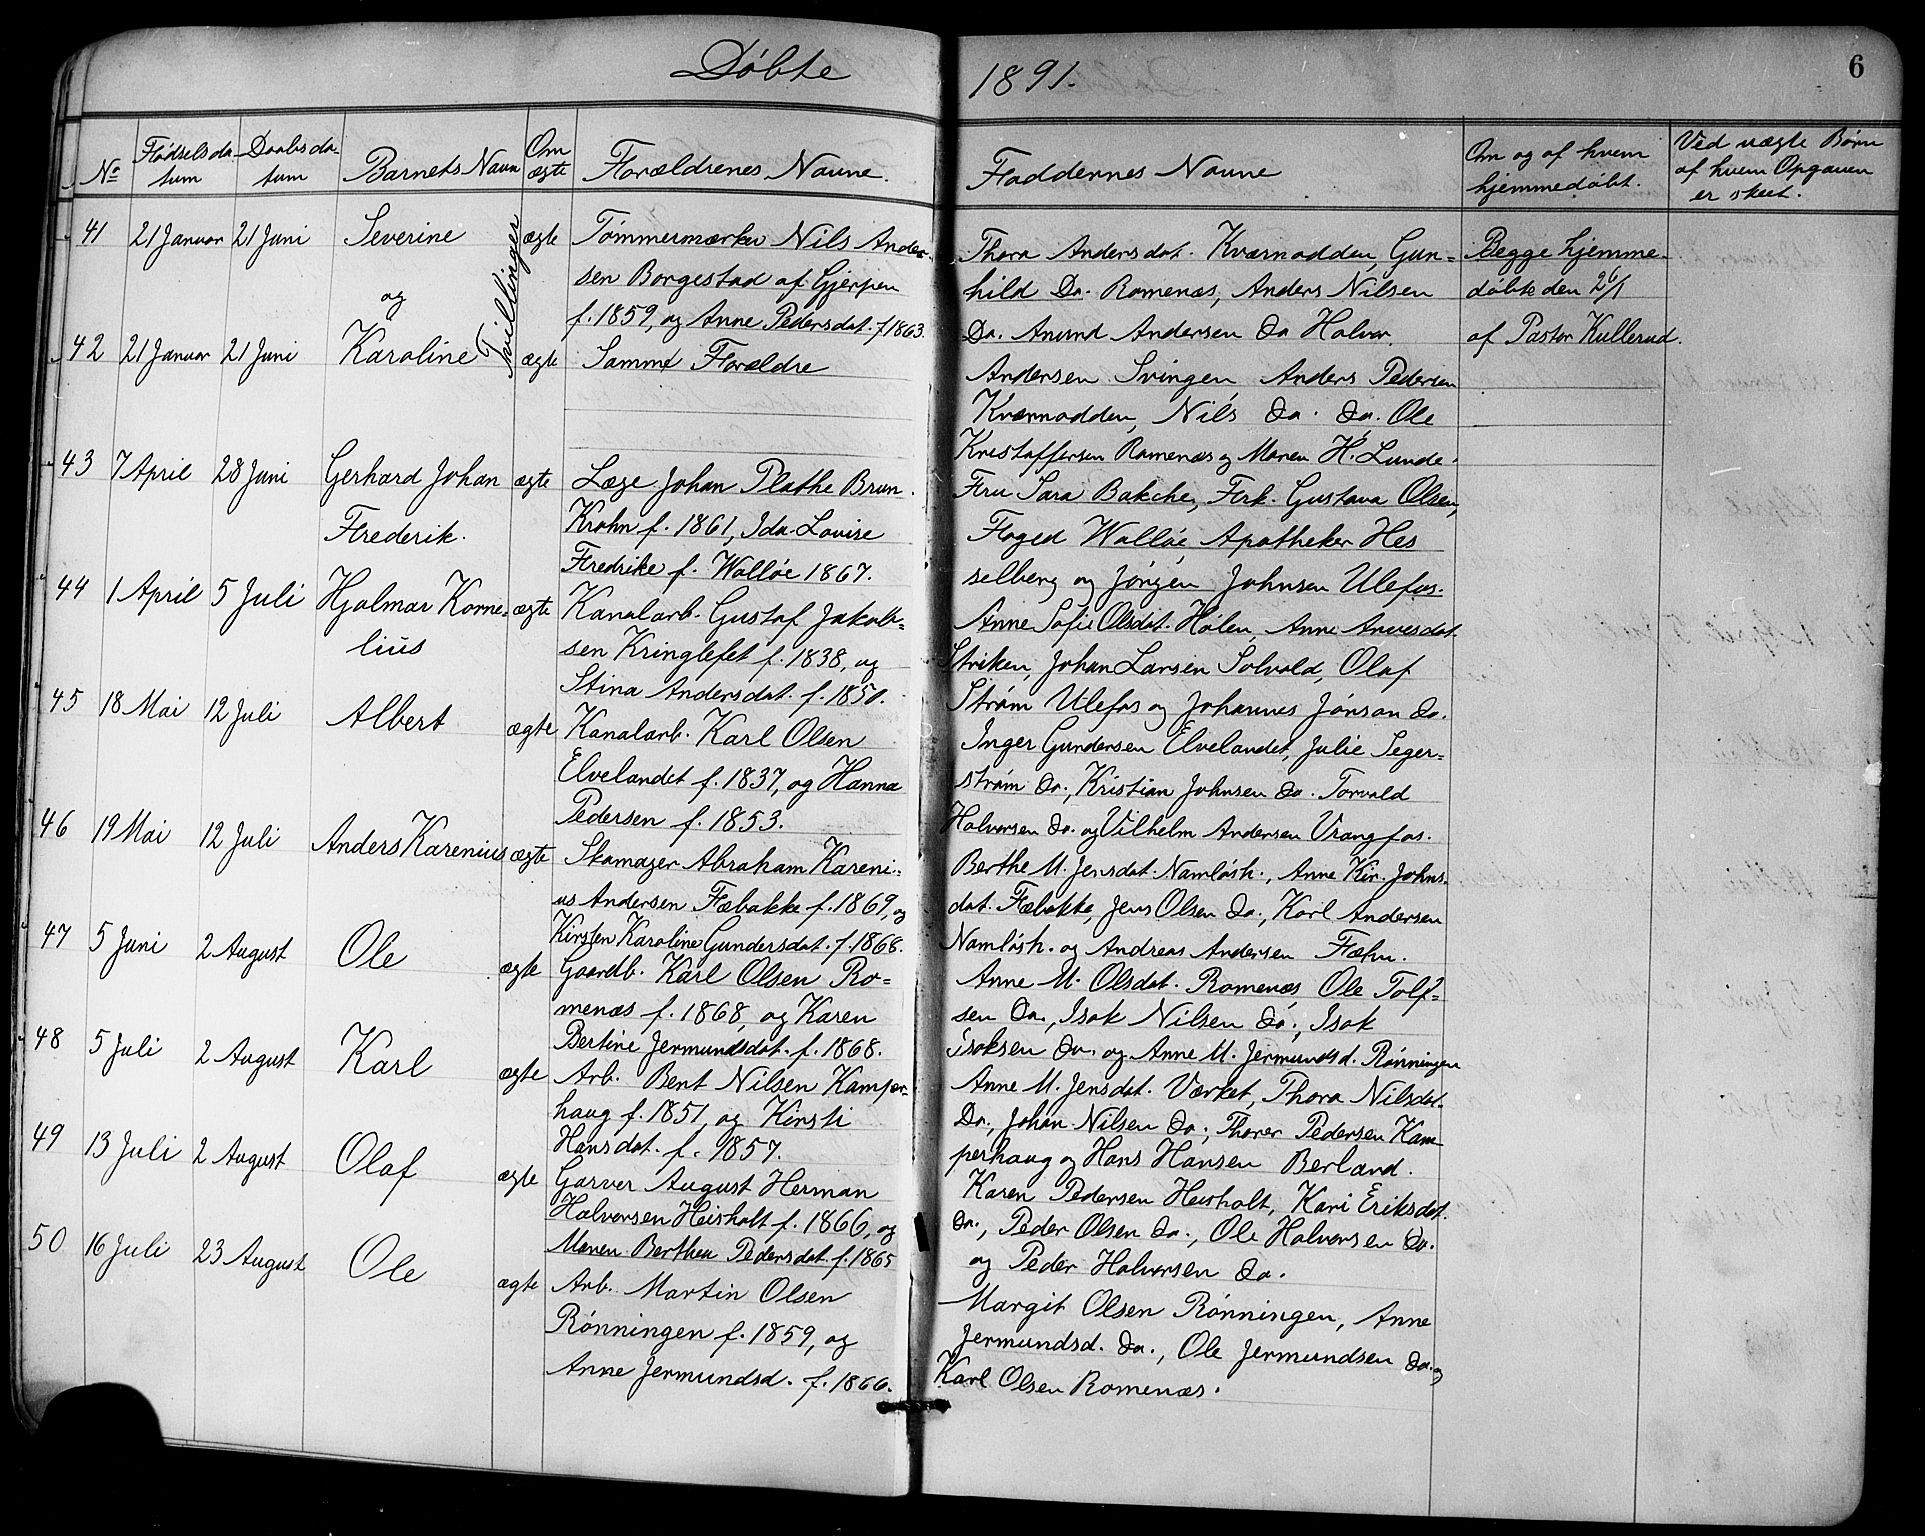 Døbte 1891.
6
No
Fødselsdatum
Daabsdatum
Barnets Navn
Om ægte
Forældrenes Navne.
Faddernes Navne
Om og af hvem hjemmedøbt.
Ved uægte Børn af hvem Opgaven er skeet.
41 21 Januar 21 Juni Severine ægte Tømmermærker Nils Ander-
sen Borgestad af Gjerpen
og
f. 1859, og Anne Pedersdat. f 1863.
Tvillinger
42 21 Januar 21 Juni Karoline ægte Samme Forældre
Thora Andersdat. Kværnodden, Gun-
hild Do. Romenæs, Anders Nilsen
Do. Anund Andersen do Halvor
Andersen Svingen, Anders Pedersen
Kværnodden, Nils do. do. Ole
Kristoffersen Romenæs og Maren H. Lunde.
Begge hjemme-
døbte den 26/1
af Pastor Kullerud.
43 7 April 28 Juni Gerhard Johan ægte Læge Johan Plathe Brun
Frederik. Krohn f. 1861, Ida Lovise
Fredrike f. Walløe 1867.
Fru Sara Bakche, Frk. Gustava Olsen,
Foged Walløe, Apotheker Hes
selberg og Jørgen Johnsen Ulefos.
44 1 April 5 Juli Hjalmar Korne- ægte Kanalarb. Gustaf Jakob-
lius sen Kringlefet f. 1838, og
Stina Andersdat. f. 1850.
Anne Sofie Olsdat. Holen, Anne Anvesdat.
Striken, Johan Larsen Solvold, Olaf
Strøm Ulefos og Johannes Jonson do.
45 18 Mai 12 Juli Albert ægte Kanalarb. Karl Olsen
Elvelandet f. 1837, og Hanna
Pedersen f. 1853.
Inger Gundersen Elvelandet, Julie Seger-
strøm do., Kristian Johnsen do. Torvald
Halvorsen do. og Vilhelm Andersen Vrangfos.
46 19 Mai 12 Juli Anders Karenius ægte Skomager Abraham Kareni-
us Andersen Fæbakke f. 1869, og
Kirsten Karoline Gundersdat. f. 1868.
Berthe M. Jensdat. Namløsh., Anne Kir. Johns-
dat. Fæbakke, Jens Olsen do., Karl Andersen
Namløsh. og Andreas Andersen Fæhn.
47 5 Juni 2 August Ole ægte Gaardb. Karl Olsen Ro-
menæs f. 1868, og Karen
Bertine Jermundsdat. f. 1868.
Anne M. Olsdat. Romenæs Ole Tolf-
sen do., Isak Nilsen do., Isak
Isaksen do. og Anne M. Jermundsd. Rønningen
48 5 Juli 2 August Karl ægte Arb. Bent Nilsen Kamper-
haug f. 1851, og Kirsti
Hansdat. f. 1857.
Anne M. Jensdat. Værket, Thora Nilsdat.
Do., Johan Nilsen do., Thorer Pedersen Kam-
perhaug og Hans Hansen Berland.
49 13 Juli 2 August Olaf ægte Garver August Herman
Halvorsen Heisholt f. 1866, og
Maren Berthea Pedersdat. f. 1865
Karen Pedersen Heisholt, Kari Eriksdat.
do., Peder Olsen do., Ole Halvorsen do.
og Peder Halvorsen do.
50 16 Juli 23 August Ole ægte Arb. Martin Olsen
Rønningen f. 1859, og
Anne Jermundsd. f. 1866.
Margit Olsen Rønningen, Anne
Jermundsd. do., Ole Jermundsen do. og
Karl Olsen Romenæs.